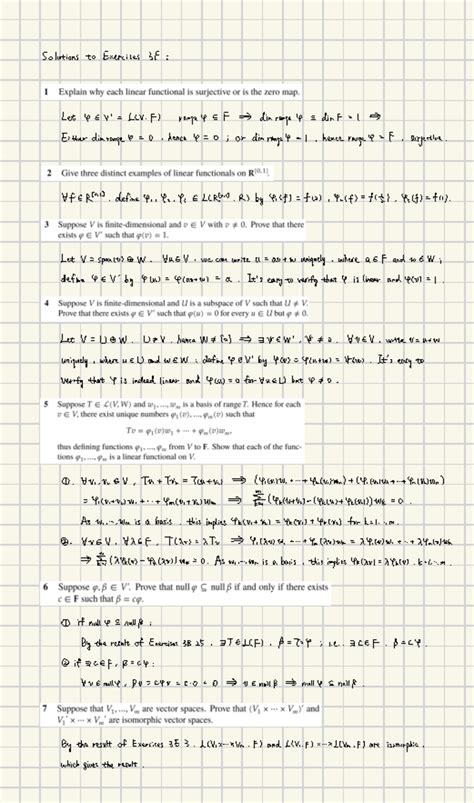 Solutions to Exercises 3F :
1 Explain why each linear functional is surjective or is the zero map.
Let φ ∈ V' = L(V, F) range φ ⊆ F ⇒ dim range φ ≤ dim F = 1 ⇒
Either dim range φ = 0, hence φ = 0 ; or dim range φ = 1, hence range φ = F, surjective.
2 Give three distinct examples of linear functionals on R^[0,1].
∀f ∈ R^[0,1], define φ₁, φ₂, φ₃ ∈ L(R^[0,1], R) by φ₁(f) = f(0), φ₂(f) = f(½), φ₃(f) = f(1).
3 Suppose V is finite-dimensional and v ∈ V with v ≠ 0. Prove that there
exists φ ∈ V' such that φ(v) = 1.
Let V = span(v) ⊕ W. ∀u ∈ V, we can write u = av + w uniquely, where a ∈ F and w ∈ W ;
define φ ∈ V' by φ(u) = φ(av+w) = a. It's easy to verify that φ is linear and φ(v) = 1.
4 Suppose V is finite-dimensional and U is a subspace of V such that U ≠ V.
Prove that there exists φ ∈ V' such that φ(u) = 0 for every u ∈ U but φ ≠ 0.
Let V = U ⊕ W. U ≠ V, hence W ≠ {0} ⇒ ∃ψ ∈ W', ψ ≠ 0. ∀v ∈ V, write v = u+w
uniquely, where u ∈ U and w ∈ W ; define φ ∈ V' by φ(v) = φ(u+w) = ψ(w). It's easy to
verify that φ is indeed linear and φ(u) = 0 for ∀u ∈ U but φ ≠ 0.
5 Suppose T ∈ L(V, W) and w₁, ..., wₘ is a basis of range T. Hence for each
v ∈ V, there exist unique numbers φ₁(v), ..., φₘ(v) such that
Tv = φ₁(v)w₁ + ··· + φₘ(v)wₘ,
thus defining functions φ₁, ..., φₘ from V to F. Show that each of the func-
tions φ₁, ..., φₘ is a linear functional on V.
①. ∀v₁, v₂ ∈ V, Tv₁ + Tv₂ = T(v₁+v₂) ⇒ (φ₁(v₁)w₁ + ··· + φₘ(v₁)wₘ) + (φ₁(v₂)w₁ + ··· + φₘ(v₂)wₘ)
= φ₁(v₁+v₂)w₁ + ··· + φₘ(v₁+v₂)wₘ ⇒ Σ (φₖ(v₁+v₂) − (φₖ(v₁) + φₖ(v₂)))wₖ = 0.
As w₁, ··· wₘ is a basis, this implies φₖ(v₁+v₂) = φₖ(v₁) + φₖ(v₂) for k = 1, ··, m.
②. ∀v ∈ V, ∀λ ∈ F, T(λv) = λTv ⇒ φ₁(λv)w₁ + ··· + φₘ(λv)wₘ = λφ₁(v)w₁ + ··· + λφₘ(v)wₘ
⇒ Σ (λφₖ(v) − φₖ(λv))wₖ = 0. As w₁, ··, wₘ is a basis, this implies φₖ(λv) = λφₖ(v), k = 1, ··, m.
6 Suppose φ, β ∈ V'. Prove that null φ ⊆ null β if and only if there exists
c ∈ F such that β = cφ.
① if null φ ⊆ null β :
By the result of Exercises 3B 25, ∃T ∈ L(F), β = T∘φ ; i.e. ∃c ∈ F, β = cφ.
② if ∃c ∈ F, β = cφ :
∀v ∈ null φ, βv = cφv = c·0 = 0 ⇒ v ∈ null β ⇒ null φ ⊆ null β.
7 Suppose that V₁, ..., Vₘ are vector spaces. Prove that (V₁ × ··· × Vₘ)' and
V₁' × ··· × Vₘ' are isomorphic vector spaces.
By the result of Exercises 3E 3, L(V₁×···×Vₘ, F) and L(V₁, F)×···×L(Vₘ, F) are isomorphic,
which gives the result.